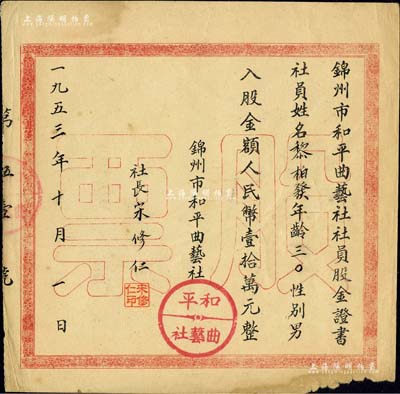 錦州市和平曲藝社社員股金證書
社員姓名黎柏發年齡三〇性別男
入股金額人民幣壹拾萬元整
錦州市和平曲藝社
社長宋修仁
一九五三年十月一日
第伍壹號
股票
和平
曲藝社
宋修
仁印